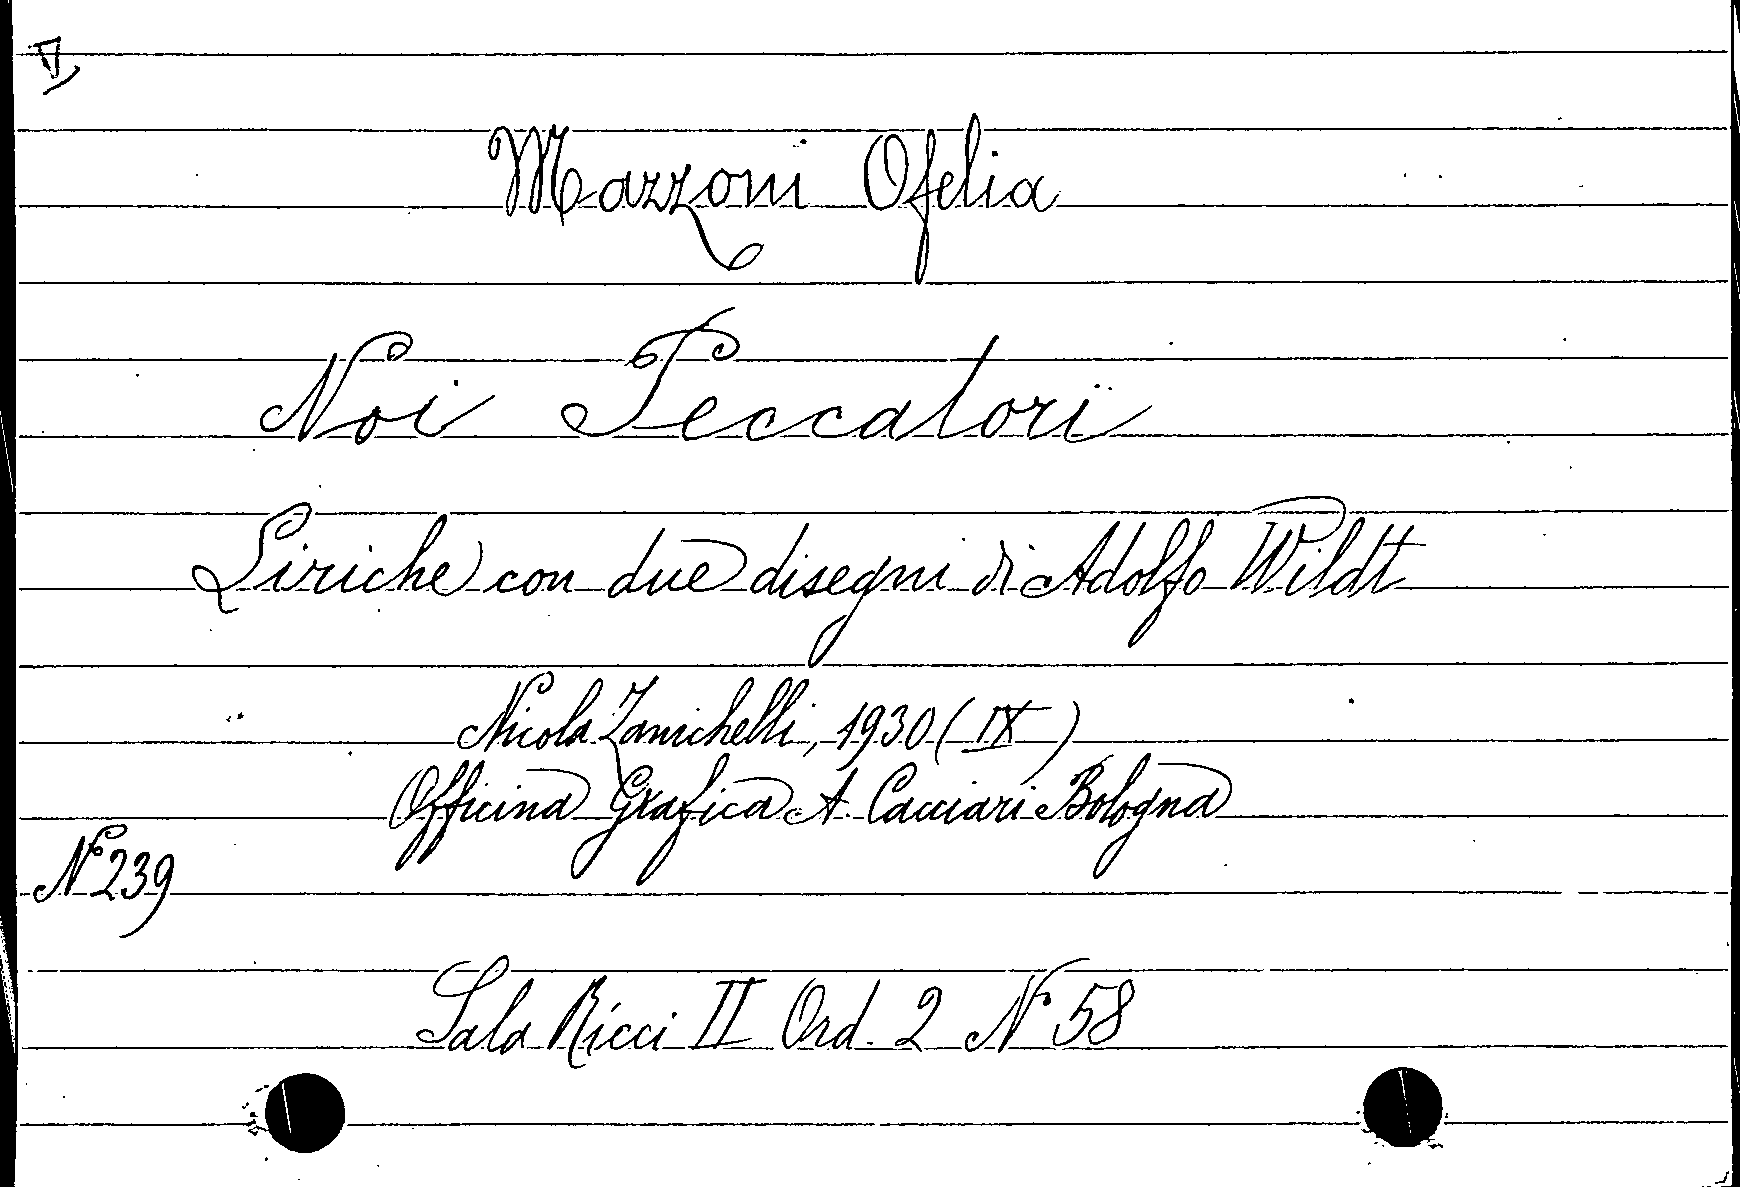 Mazzoni Ofelia
Noi Peccatori
Liriche con due disegni di Adolfo Wildt
Nicola Zanichelli, 1930 (IX)
Officina Grafica A. Cacciari Bologna
N 239
Sala Ricci II Ord. 2 N 58